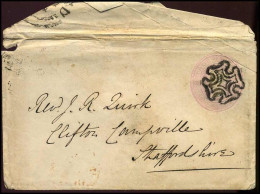 Rev. J. R. Quirk
Clifton Campville
Staffordshire